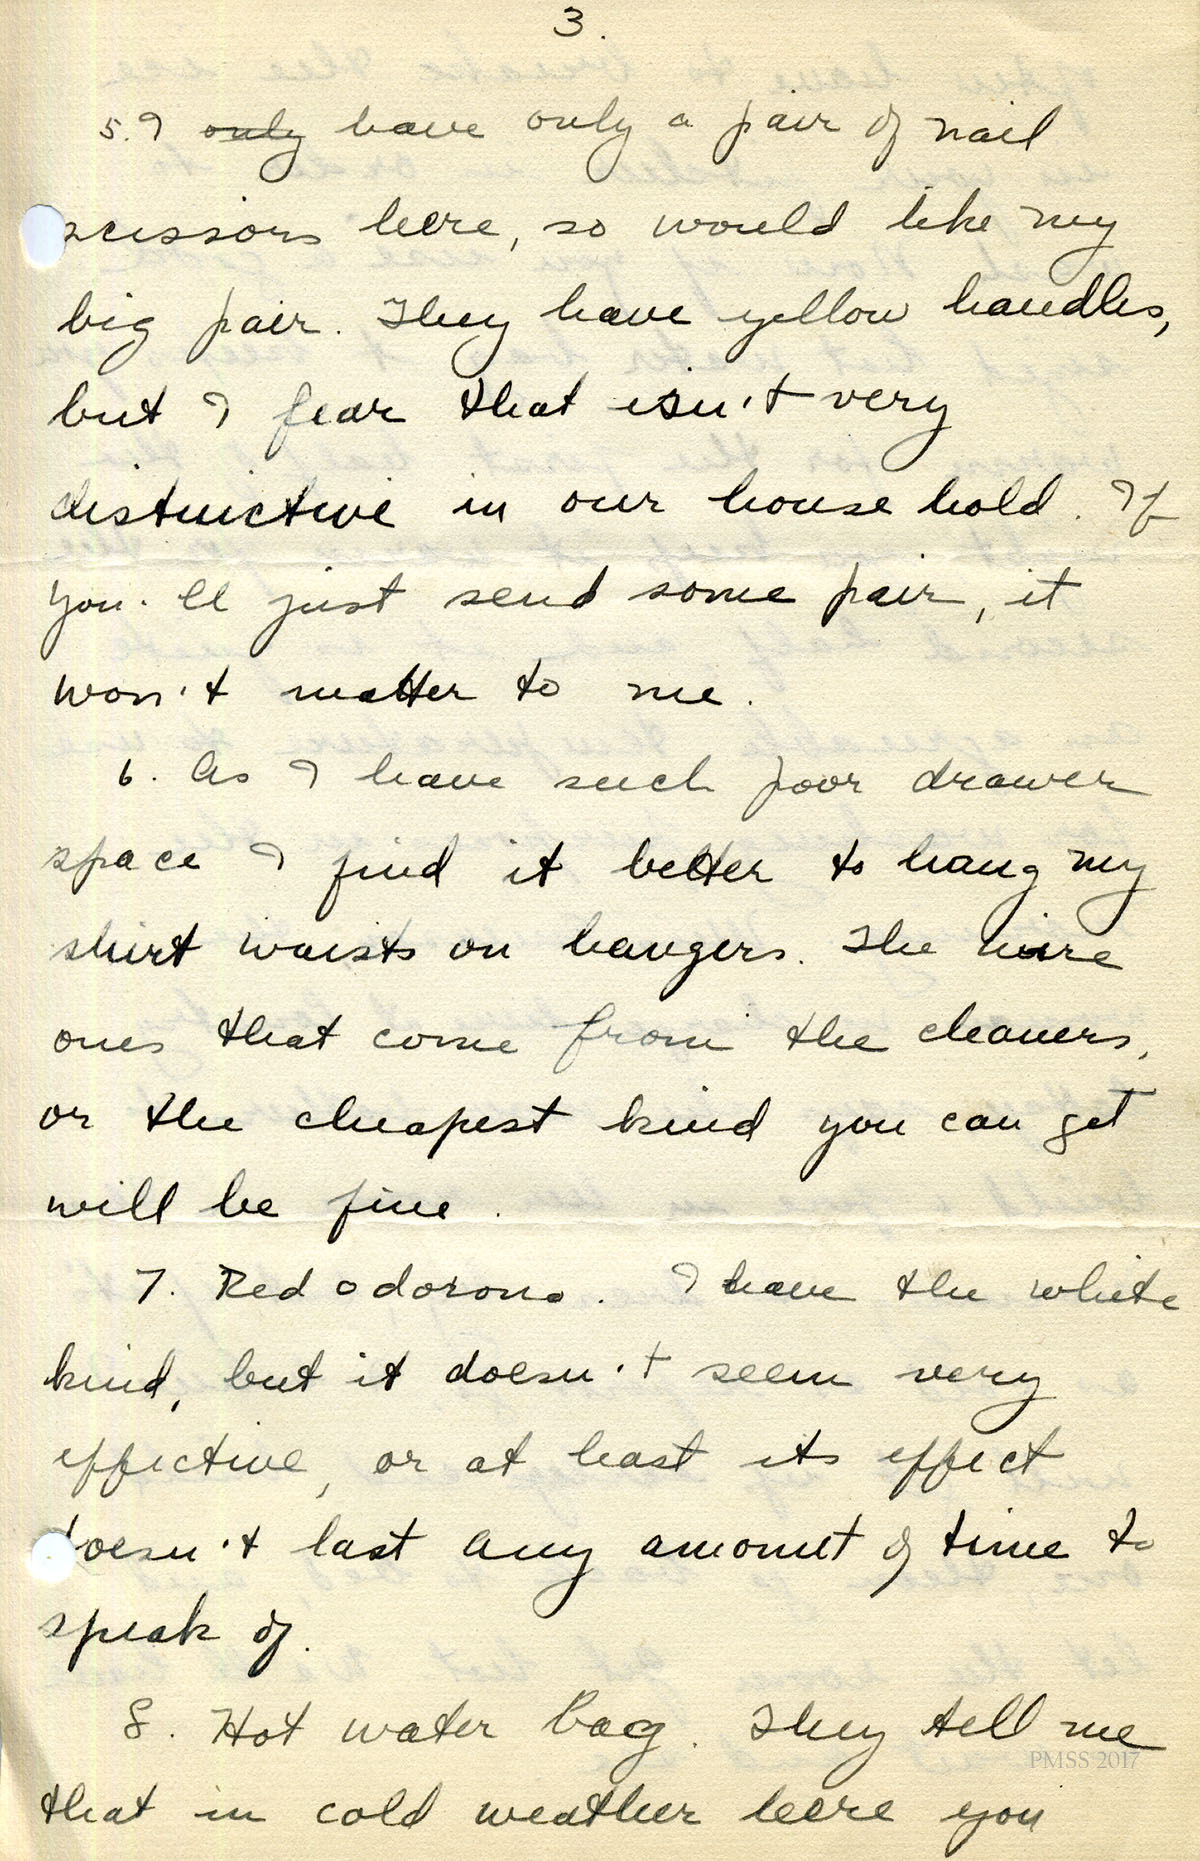 3.
5. I only have only a pair of nail
scissors here, so would like my
big pair. They have yellow handles,
but I fear that isn't very
distinctive in our house hold. If
you'll just send some pair, it
won't matter to me.
6. As I have such poor drawer
space I find it better to hang my
shirt waists on hangers. The wire
ones that come from the cleaners,
or the cheapest kind you can get
will be fine.
7. Red odorono. I have the white
kind, but it doesn't seem very
effective, or at least its effect
doesn't last any amount of time to
speak of.
8. Hot water bag. They tell me
PMSS 2017
that in cold weather here you